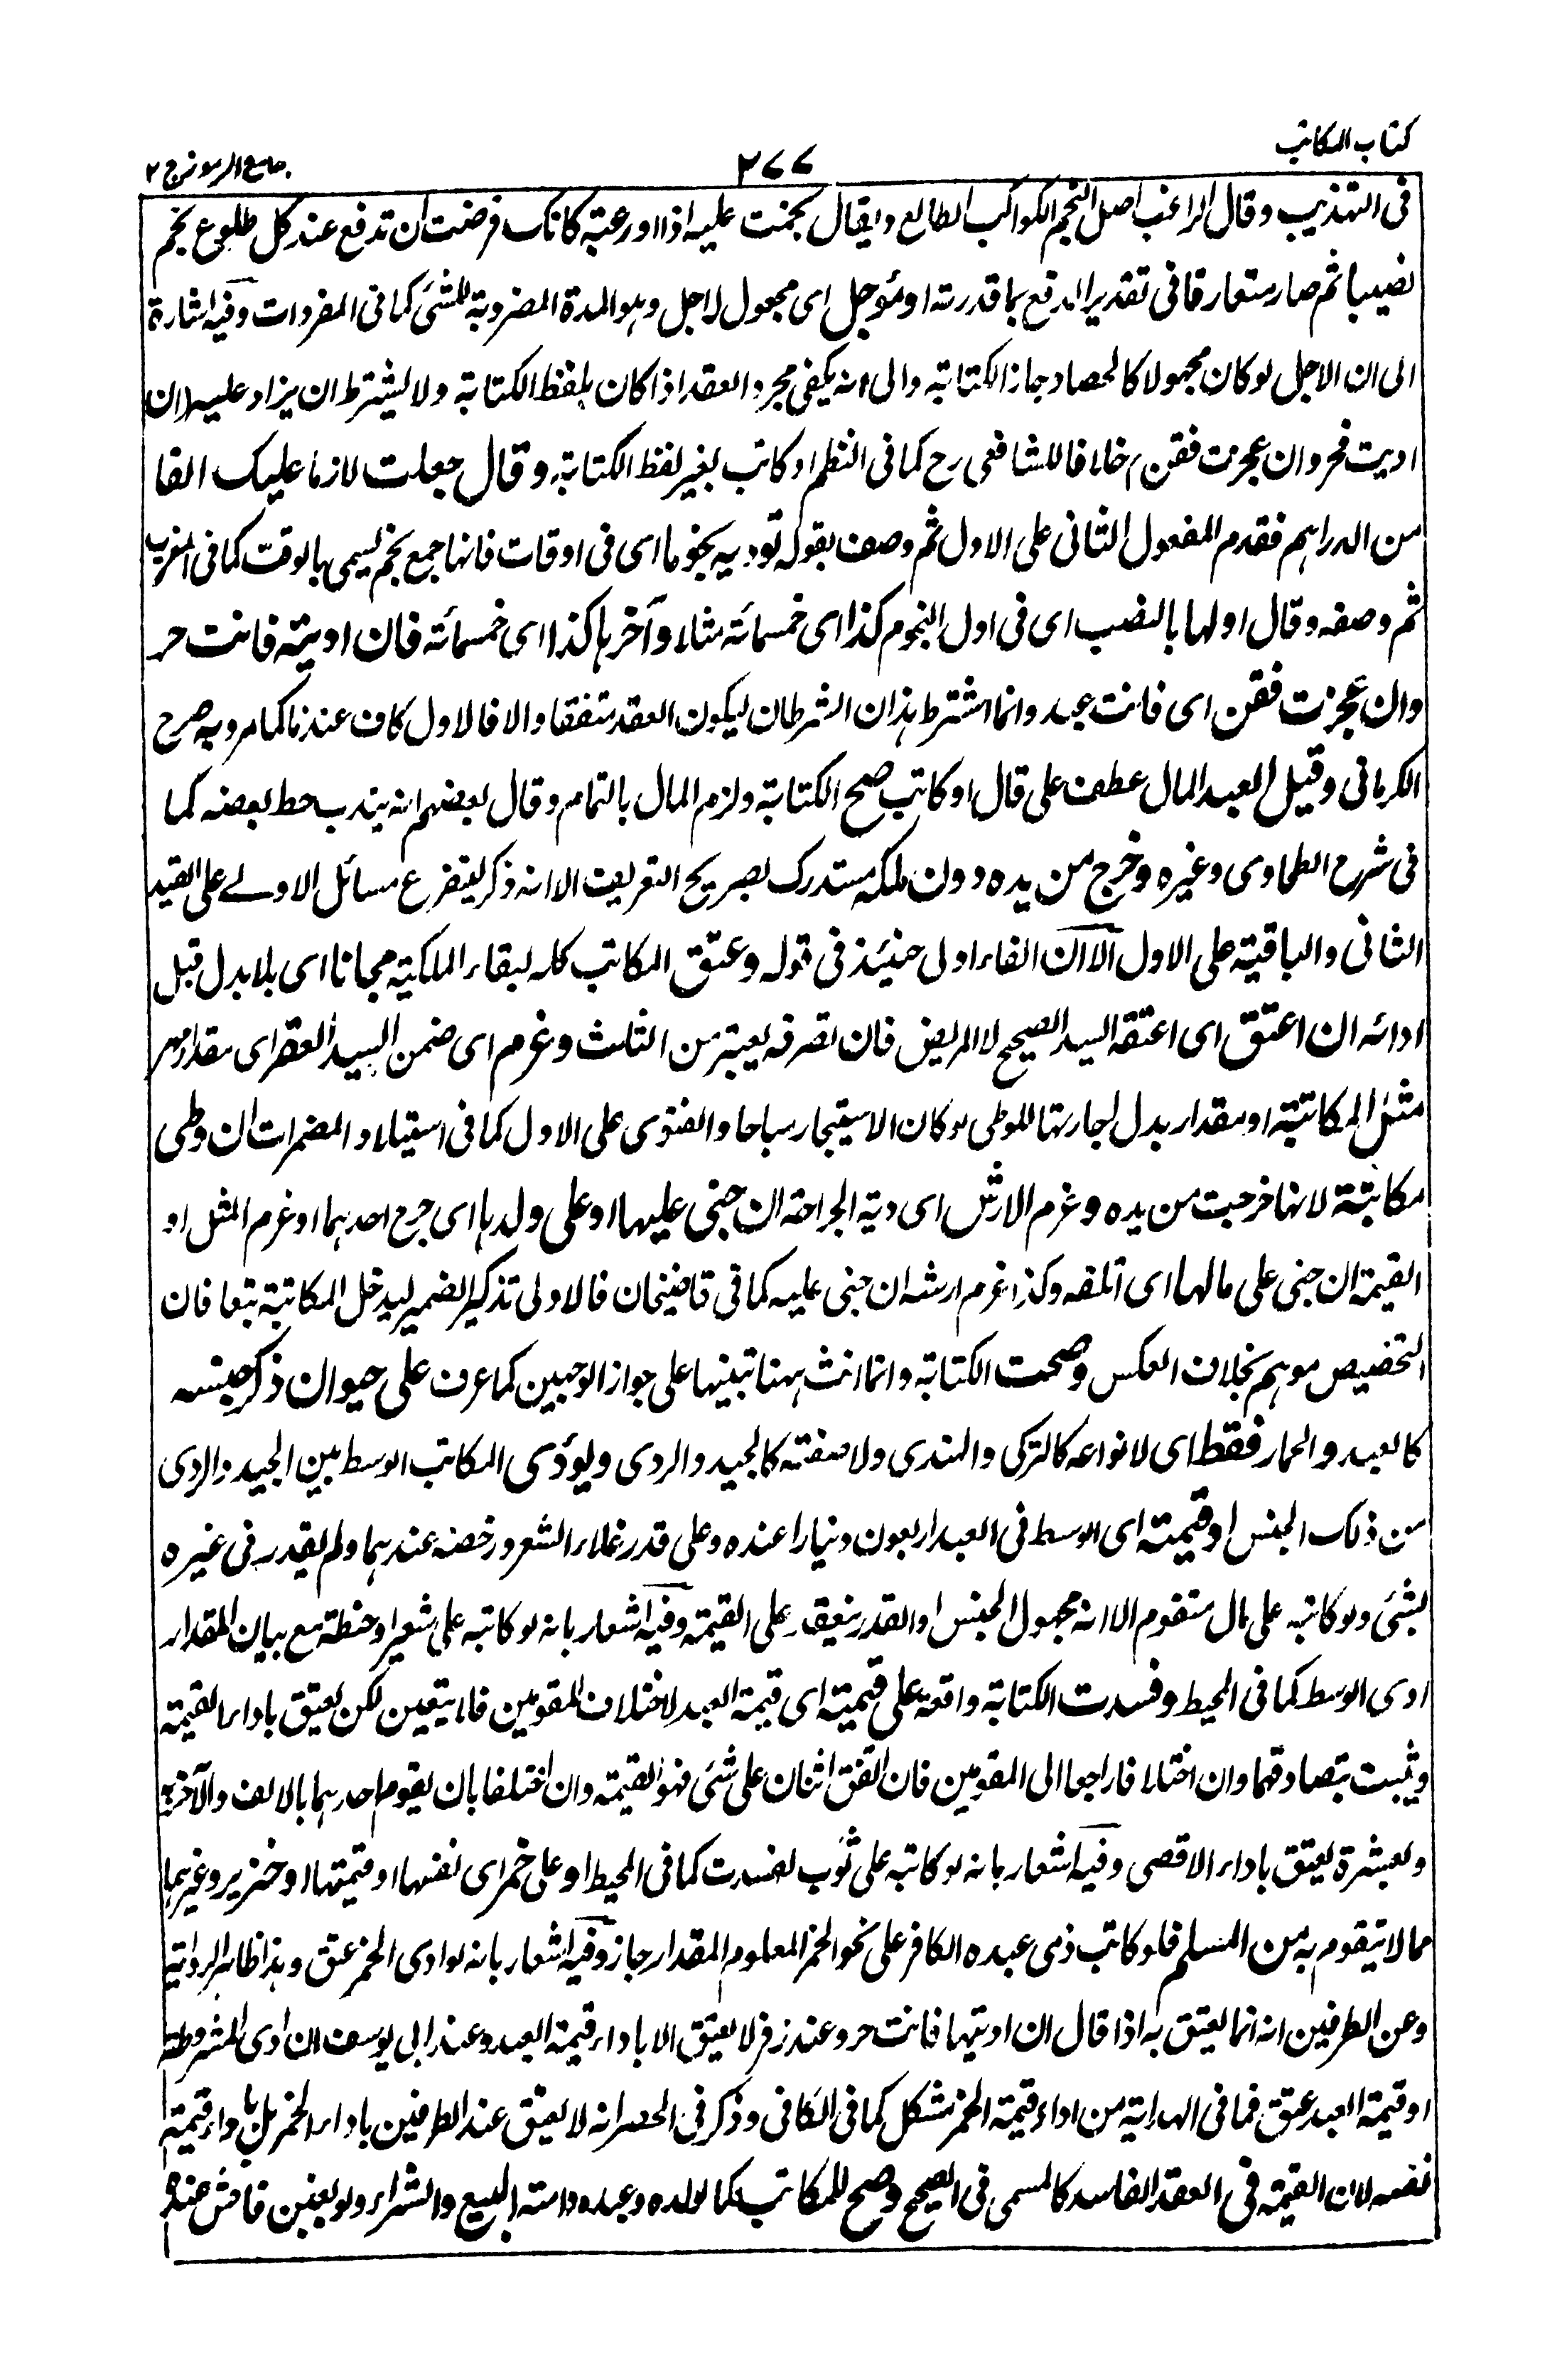 كتاب المكاتب
٣٧٧
جامع الرموز ج ٢
فى التهذيب وقال الراغب اصل النجم الكواكب الطالع ويقال نجمت عليه اذا اورعبته كانك فرضت ان تدفع عند كل طلوع نجم
نصيبا ثم صار متعارفا فى تقدير الدفع بما قدرته او مؤجل اى مجعول لاجل وهو المدة المضروبة للشئ كما فى المفردات وفيه اشارة
الى ان الاجل لو كان مجهولا كالحصاد جاز الكتابة والى انه يكفى مجرد العقد اذا كان بلفظ الكتابة ولا يشترط ان يزاد عليه ان
اديت فحر وان عجزت فقن خلافا للشافعى رح كما فى النظم او كاتب بغير لفظ الكتابة وقال جعلت لازما عليك الفا
من الدراهم فقدم المفعول الثانى على الاول ثم وصف بقوله توديه نجوما اى فى اوقات فانها جمع نجم يسمى بالوقت كما فى المغرب
ثم وصفه وقال اولها بالنصب اى فى اول النجوم كذا اى خمسمائة مثلا وآخرها كذا اى خمسمائة فان اديته فانت حر
وان عجزت فقن اى فانت عبد وانما اشترط هذان الشرطان ليكون العقد متفقا والا فالاول كاف عندنا كما مر وبه صرح
الكرمانى وقبل العبد المال عطف على قال او كاتب صح الكتابة ولزم المال بالتمام وقال بعضهم انه يندب حط بعضه كما
فى شرح الطحاوى وغيره وخرج من يده دون ملكه مستدرك بصريح التعريف الا انه ذكر ليتفرع مسائل الاولے على القيد
الثانى والباقية على الاول الا ان الفاء اولى حينئذ فى قوله وعتق المكاتب كله لبقاء الملكية مجانا اى بلا بدل قبل
ادائه ان اعتق اى اعتقه السيد الصحيح لا المريض فان تصرفه يعتبر من الثلث وغرم اى ضمن السيد العقر اى مقدار مهر
مثل المكاتبة او مقدار بدل اجارتها للوطى لو كان الاستيجار مباحا والفتوى على الاول كما فى استيلاد المضمرات ان وطى
مكاتبة لانها خرجت من يده وغرم الارش اى دية الجراحة ان جنى عليها او على ولدها اى جرح احدهما او غرم المثل او
القيمة ان جنى على مالها اى اتلفه وكذا غرم ارشه ان جنى عليه كما فى قاضيخان فالاولى تذكير الضمير ليدخل المكاتبة تبعا فان
التخصيص موهم بخلاف العكس وصحت الكتابة وانما انث ههنا تبنيها على جواز الوجهين كما عرف على حيوان ذكر جنسه
كالعبد والحمار فقط اى لا نواعه كالتركى والهندى ولا صفته كالجيد والردى ويؤدى المكاتب الوسط بين الجيد والردى
من ذلك الجنس او قيمته اى الوسط فى العبد اربعون دنيارا عنده وعلى قدر غلاء الشعر ورخصه عندهما ولم يقدر فى غيره
بشئ ولو كاتبه على مال متقوم الا انه مجهول الجنس او القدر ينعقد على القيمة وفيه اشعار بانه لو كاتبه على شعير او حنطة مع بيان المقدار
ادى الوسط كما فى المحيط وفسدت الكتابة واقعة على قيمته اى قيمة العبد لاختلاف المقومين فلا يتعين لكن يعتق باداء القيمة
ويثبت بتصادقهما وان اختلفا راجعا الى المقومين فان اتفق اثنان على شئ فهو القيمة وان اختلفا بان يقوم احدهما بالالف والآخر به
وبعشرة يعتق باداء الاقصى وفيه اشعار بانه لو كاتبه على ثوب لفسدت كما فى المحيط او على خمر اى نفسها او قيمتها او خنزير وغيرهما
مما لا يتقوم به من المسلم فلو كاتب ذمى عبده الكافر على نحو الخمر المعلوم المقدار جاز وفيه اشعار بانه لو ادى الخمر عتق وهذا ظاهر الرواية
وعن الطرفين انه انما يعتق به اذا قال ان اديتها فانت حر وعند زفر لا يعتق الا باداء قيمة العبد وعند ابى يوسف ان ادى المشروطة
او قيمة العبد عتق فما فى الهداية من اداء قيمة الخمر مشكل كما فى الكافى وذكر فى الحصر انه لا يعتق عند الطرفين باداء الخمر بل باداء قيمة
نفسه لان القيمة فى العقد الفاسد كالمسمى فى الصحيح وصح للمكاتب كما لولده وعبده وامته البيع والشراء ولو بغبن فاحش عنده